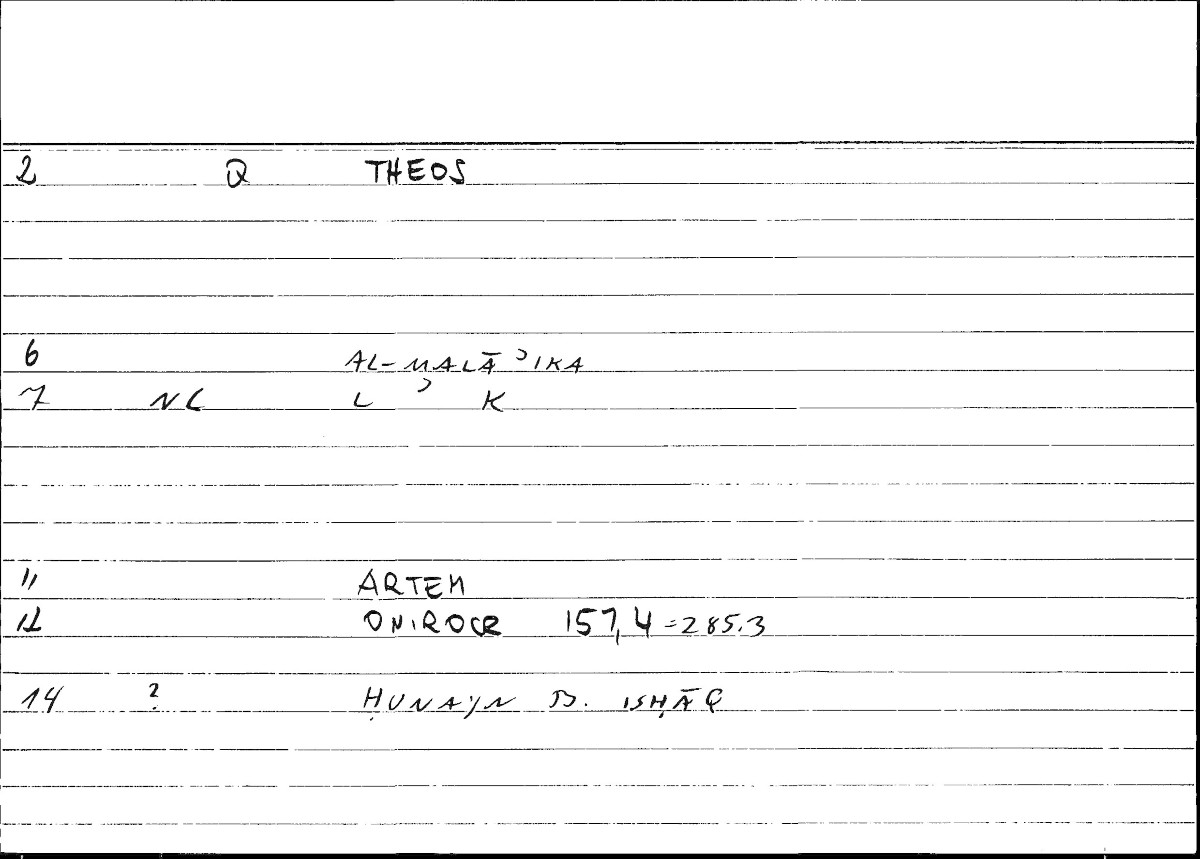 2 Q THEOS
6 AL-MALĀʾIKA
7 NC L ʾ K
11 ARTEM
12 ONIROCR 157,4=285.3
14 ? ḤUNAYN B. ISḤĀQ